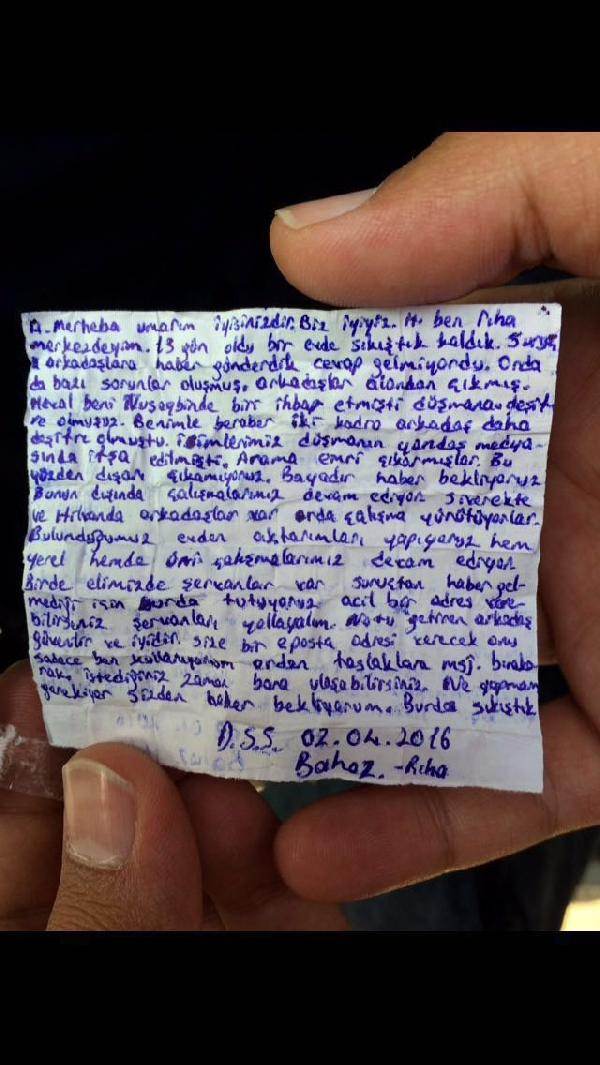 Merheba umarım iyisinizdir. Biz iyiyiz. ben Rıha
merkezdeyim. 13 gün oldu bir evde sıkıştık kaldık. Suruç
arkadaşlara haber gönderdik cevap gelmiyordu. Orda
da bazı sorunlar oluşmuş. arkadaşlar alandan çıkmış.
Heval beni Nuseybinde biri ihbar etmişti düşmana. deşif-
re olmuşuz. Benimle beraber iki kadro arkadaş daha
deşifre olmuştu. isimlerimiz düşmanın yandaş medya-
sında ifşa edilmişti. Arama emri çıkarmışlar. Bu
yüzden dışarı çıkamıyoruz. Bayadır haber bekliyoruz
Bunun dışında çalışmalarımız devam ediyor siverekte
ve Hilvanda arkadaşlar var orda çalışma yürütüyorlar.
Bulunduğumuz evden aktarımları yapıyoruz hem
yerel hemde çalışmalarımız devam ediyor
Birde elimizde şervanlar var suruçtan haber gel-
mediği için burda tutuyoruz acil bir adres vere-
bilirseniz şervanları yollayalım. Notu getiren arkadaş
güvenilir ve iyidir. size bir eposta adresi verecek onu
sadece ben kullanıyorum ordan taslaklara msj. bıraka-
rak istediğiniz zaman bana ulaşabilirsiniz. Ne yapmam
gerekiyor sizden haber bekliyorum. Burda sıkıştık
D.S.S. 02.04.2016
Bahoz. -Rıha